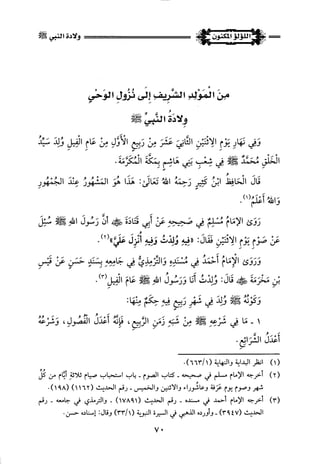 اللؤلؤ المكنون
ولادة النبي ﷺ
مِنَ الْمَوْلِدِ الشَّرِيفِ إِلَى نُزُولِ الْوَحْيِ
وِلَادَةُ النَّبِيِّ ﷺ
وَفِي نَهَارِ يَوْمِ الِاثْنَيْنِ الثَّانِيَ عَشَرَ مِنْ رَبِيعٍ الْأَوَّلِ مِنْ عَامِ الْفِيلِ وُلِدَ سَيِّدُ
الْخَلْقِ مُحَمَّدٌ ﷺ فِي شِعْبِ بَنِي هَاشِمٍ بِمَكَّةَ الْمُكَرَّمَةِ.
قَالَ الْحَافِظُ ابْنُ كَثِيرٍ رَحِمَهُ اللهُ تَعَالَى: هَذَا هُوَ الْمَشْهُورُ عِنْدَ الْجُمْهُورِ
وَاللهُ أَعْلَمُ(١).
رَوَى الْإِمَامُ مُسْلِمٌ فِي صَحِيحِهِ عَنْ أَبِي قَتَادَةَ ﵁ أَنَّ رَسُولَ اللهِ ﷺ سُئِلَ
عَنْ صَوْمِ يَوْمِ الِاثْنَيْنِ فَقَالَ: «فِيهِ وُلِدْتُ وَفِيهِ أُنْزِلَ عَلَيَّ»(٢).
وَرَوَى الْإِمَامُ أَحْمَدُ فِي مُسْنَدِهِ وَالتِّرْمِذِيُّ فِي جَامِعِهِ بِسَنَدٍ حَسَنٍ عَنْ قَيْسِ
بْنِ مَخْرَمَةَ ﵁ قَالَ: وُلِدْتُ أَنَا وَرَسُولُ اللهِ ﷺ عَامَ الْفِيلِ(٣).
وَكَوْنُهُ ﷺ وُلِدَ فِي شَهْرِ رَبِيعٍ فِيهِ حِكَمٌ مِنْهَا:
١ - مَا فِي شَرْعِهِ ﷺ مِنْ شَبَهِ زَمَنِ الرَّبِيعِ، فَإِنَّهُ أَعْدَلُ الْفُصُولِ، وَشَرْعُهُ
أَعْدَلُ الشَّرَائِعِ.
(١) انظر البداية والنهاية (٦٦٣/١).
(٢) أخرجه الإمام مسلم في صحيحه - كتاب الصوم - باب استحباب صيام ثلاثة أيام من كل
شهر وصوم يوم عرفة وعاشوراء والاثنين والخميس - رقم الحديث (١١٦٢) (١٩٨).
(٣) أخرجه الإمام أحمد في مسنده - رقم الحديث (١٧٨٩١) - والترمذي في جامعه - رقم
الحديث (٣٩٤٧) - وأورده الذهبي في السيرة النبوية (٣٣/١) وقال: إسناده حسن.
٧٠